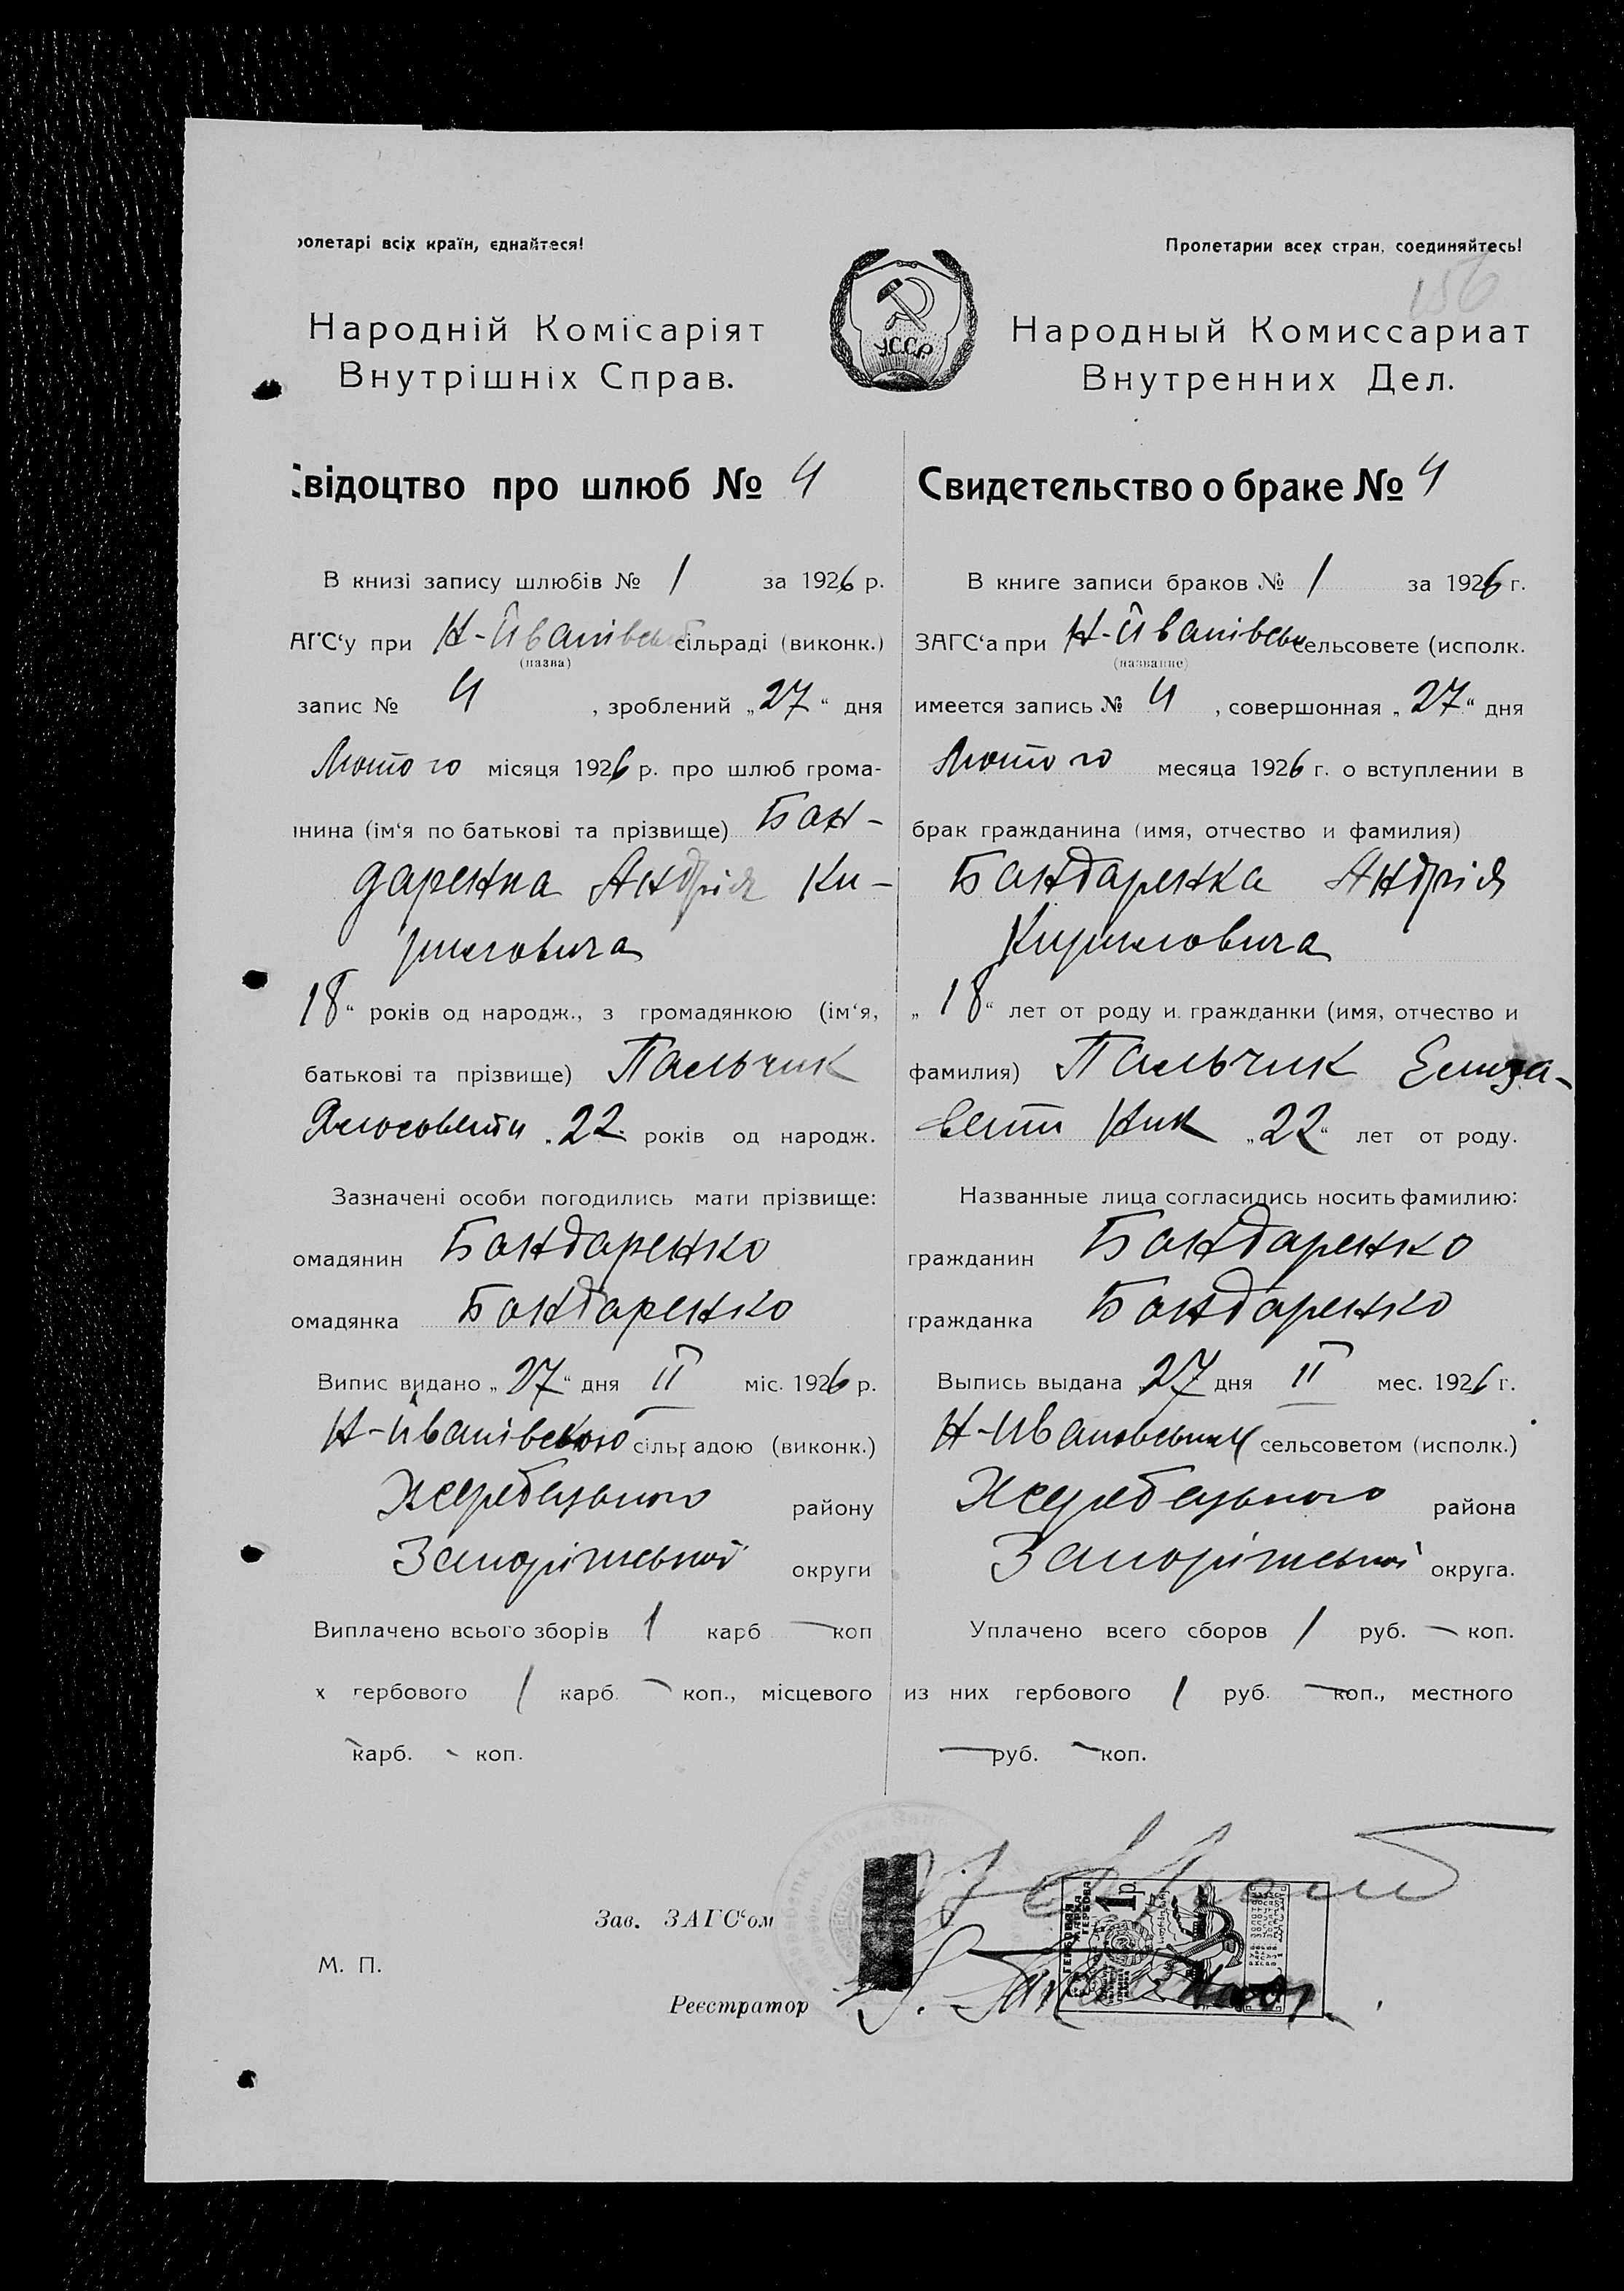 ролетарі всіх країн, єднайтеся!
Народній Комісаріят
Внутрішніх Справ.
У.С.С.Р
Пролетарии всех стран, соединяйтесь!
156
Народный Комиссариат
Внутренних Дел.
відоцтво про шлюб № 4
В книзі запису шлюбів № 1 за 1926 р.
АГС‘у при Н-Йванівськ сільраді (виконк.)
(назва)
запис № 4 , зроблений „27“ дня
Лютого місяця 1926 р. про шлюб грома-
нина (ім‘я по батькові та прізвище) Бон-
даренка Андрія Ки-
риловича
18“ років од народж., з громадянкою (ім‘я,
батькові та прізвище) Пальчик
„22“ років од народж.
Зазначені особи погодились мати прізвище:
омадянин Бондаренко
омадянка Бондаренко
Випис видано „27“ дня II міс. 1926 р.
Н-Иванівською сільрадою (виконк.)
Жеребецького району
Запоріжської округи
Виплачено всього зборів 1 карб — коп
х гербового 1 карб. — коп., місцевого
карб. - коп.
Свидетельство о браке № 4
В книге записи браков № 1 за 1926 г.
ЗАГС‘а при Н-Йванівськ сельсовете (исполк.
(название)
имеется запись № 4 , совершонная „27“ дня
Лютого месяца 1926 г. о вступлении в
брак гражданина (имя, отчество и фамилия)
Бондаренка Андрія
Кириловича
„18“ лет от роду и гражданки (имя, отчество и
фамилия) Пальчик Елиза-
вети Ник „22“ лет от роду.
Названные лица согласились носить фамилию:
гражданин Бондаренко
гражданка Бондаренко
Выпись выдана 27 дня II мес. 1926 г.
Н-Ивановским сельсоветом (исполк.)
Жеребецького района
Запоріжської округа.
Уплачено всего сборов 1 руб. — коп.
из них гербового 1 руб. — коп., местного
— руб. — коп.
Зав. ЗАГС‘ом
М. П.
Реєстратор
ГЕРБОВАЯ
МАРКА
ГЕРБОВА
1р